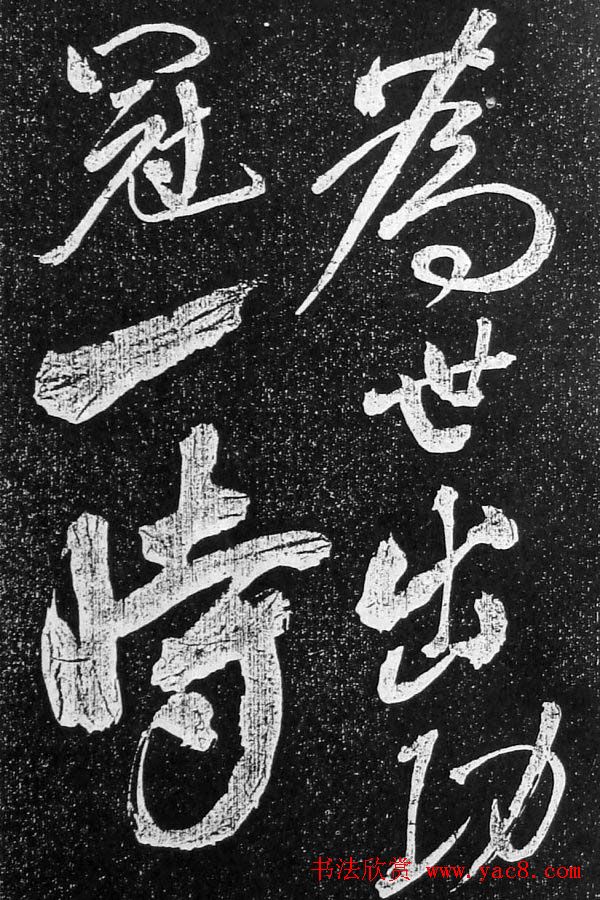 為世出功
冠一時
书法欣赏 www.yac8.com